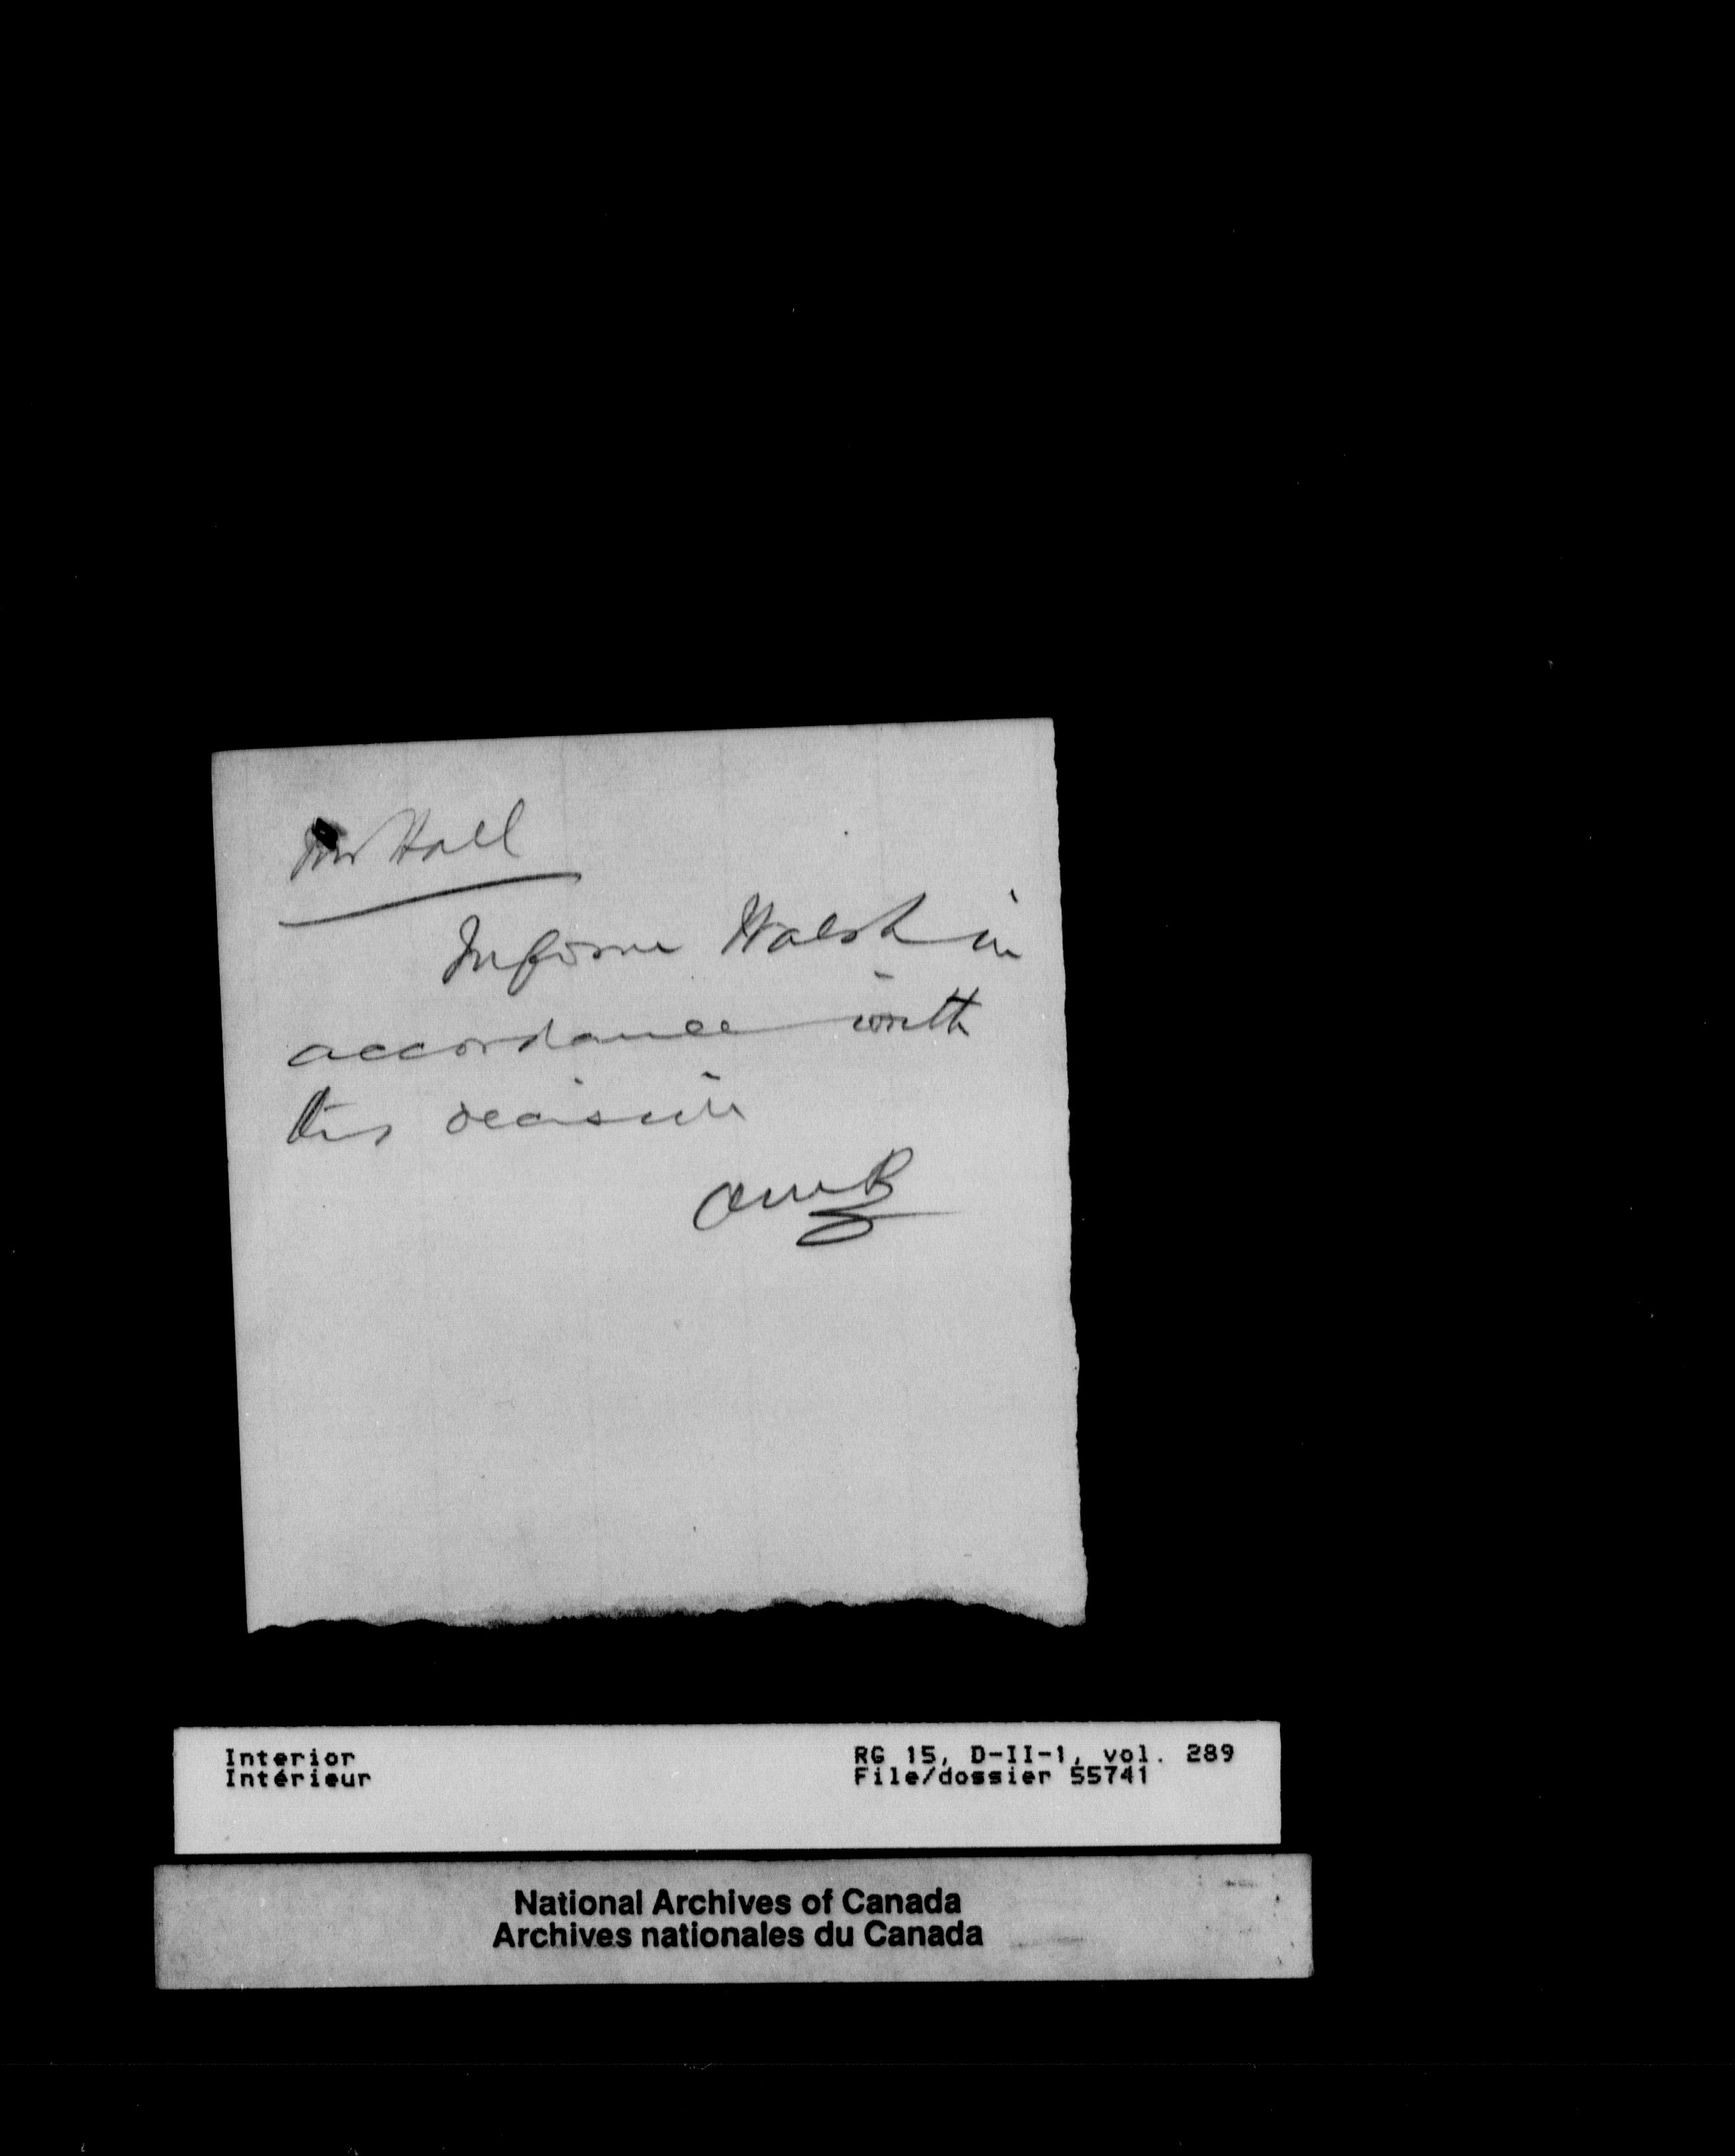 Mr Hall
Inform Walsh in
accordance with
this decision
AMB
Interior
Intérieur
RG 15, D-II-1, vol. 289
File/dossier 55741
National Archives of Canada
Archives nationales du Canada